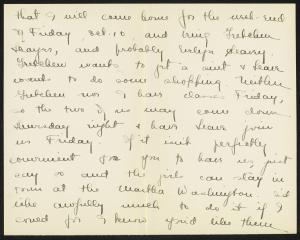 that I will come home for the week-end
of Friday, Oct. 10, and bring Gretchen
Sayre, and probably Evelyn Seavey
Gretchen wants to get a suit & Seave
wants to do some shopping. Neither
Gretchen nor I have classes Friday,
so the two of us may come down
Thursday night & have Seave join
us Friday. If it isn't perfectly
convenient for you to have us, just
say so and the girls can stay in
town at the Martha Washington. I'd
like awfully much to do it if I
could for I know you'd like them